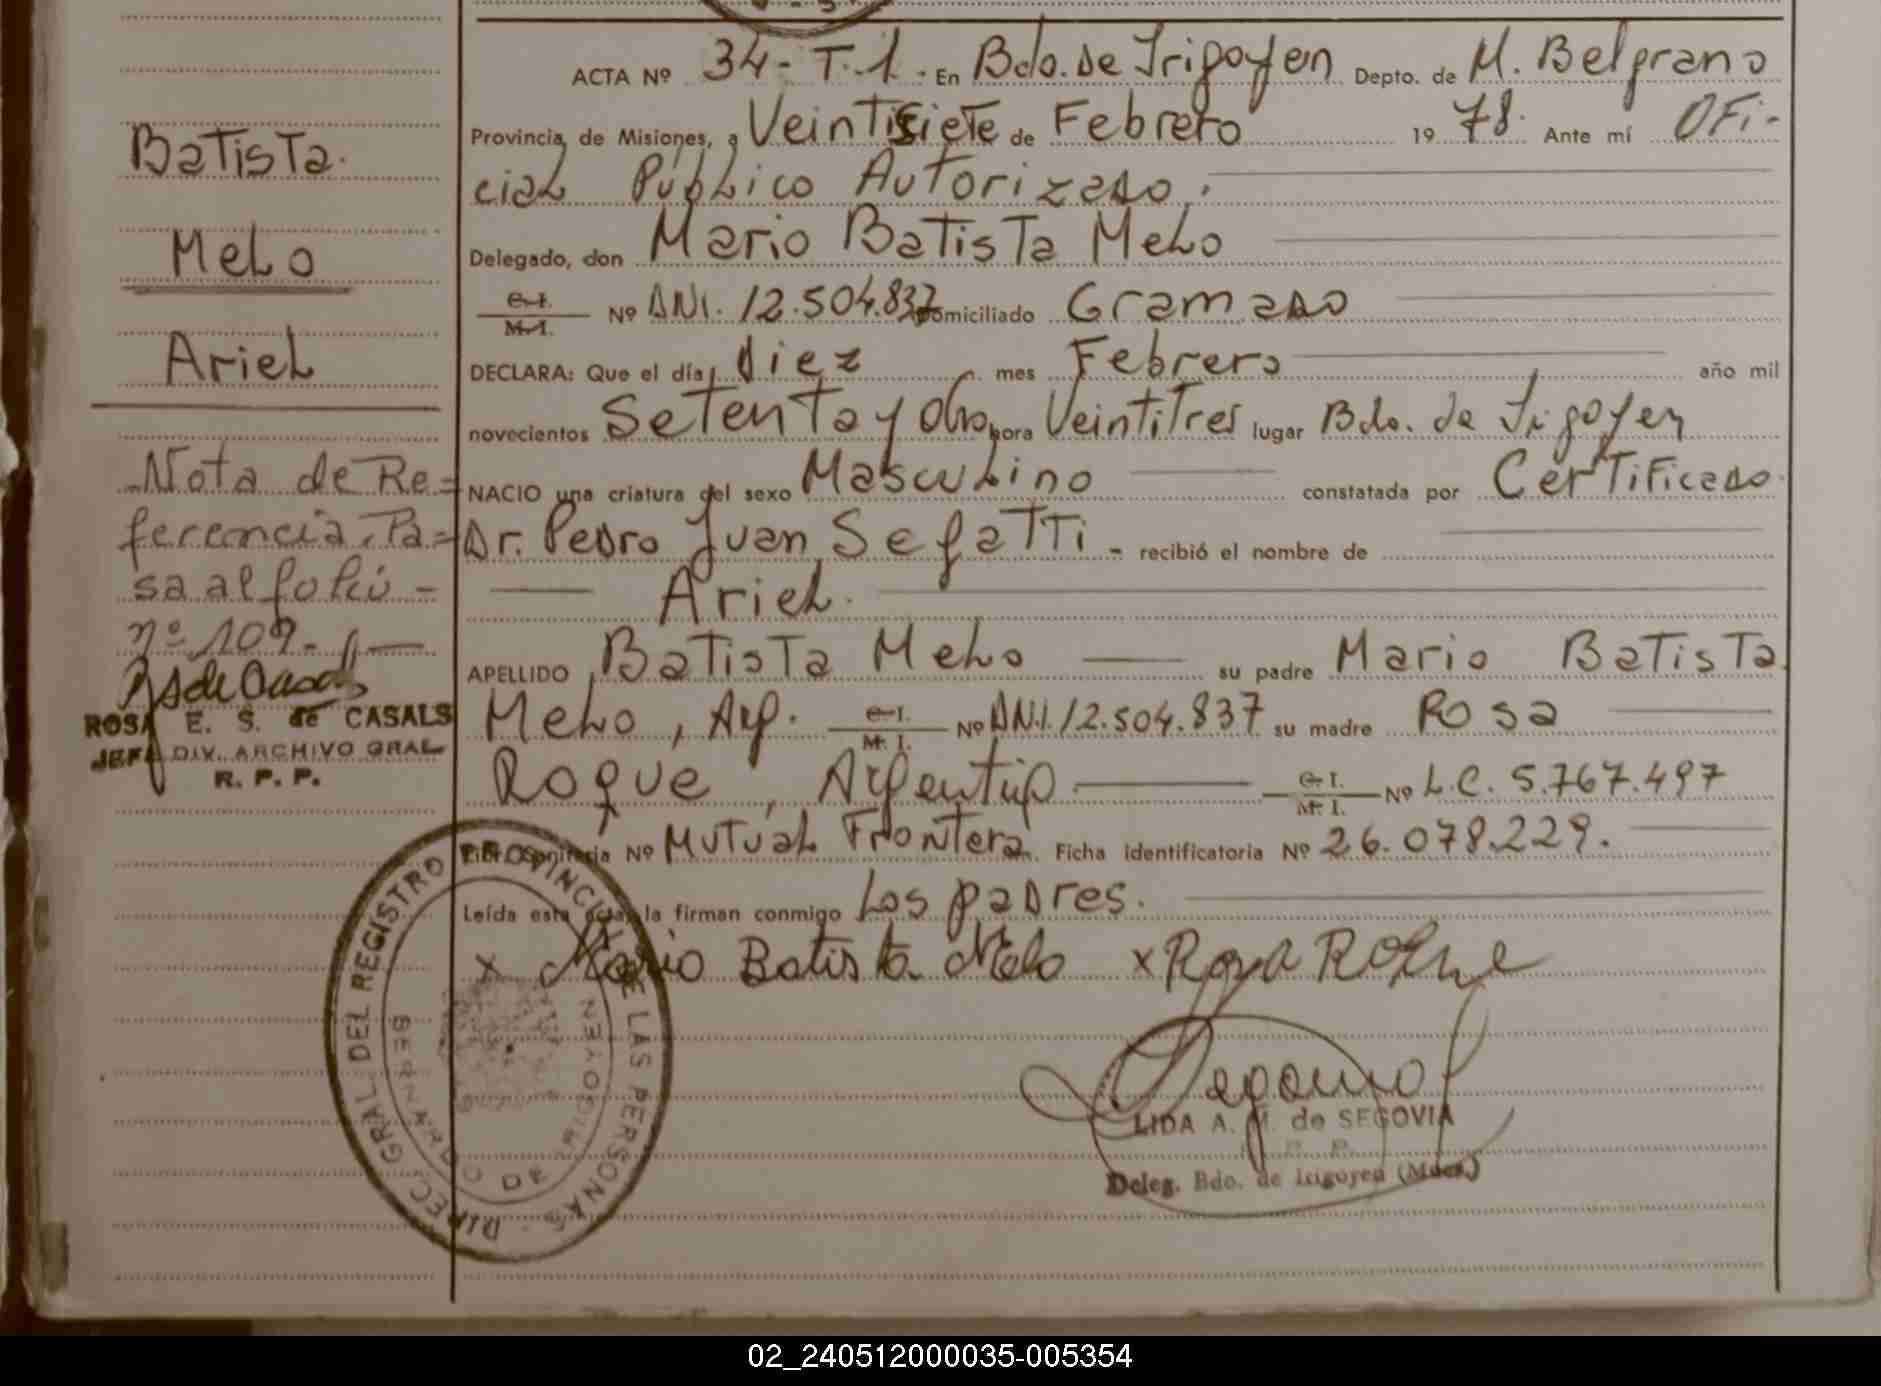 ACTA Nº 34-T.1. En Bdo. de Irigoyen Depto. de M. Belgrano
Provincia de Misiones, a Veintisiete de Febrero 1978. Ante mí Ofi-
cial Público Autorizado.
Delegado, don Mario Batista Melo
C.I. M.I. Nº DNI. 12.504.837 domiciliado Gramado
DECLARA: Que el día diez mes Febrero año mil
novecientos Setenta y Ocho hora Veintitres lugar Bdo. de Irigoyen
NACIO una criatura del sexo Masculino constatada por Certificado
Dr. Pedro Juan Segatti - recibió el nombre de
Ariel.
APELLIDO Batista Melo su padre Mario Batista
Melo, Arg. C.I. M.I. Nº DNI. 12.504.837 su madre Rosa
Roque, Argentina C.I. M.I. Nº L.C. 5.767.497
Libr. Sanitaria Nº Mutual Frontera Ficha identificatoria Nº 26.078.229.
Leída esta acta, la firman conmigo Los padres.
x Mario Batista Melo x Rosa Roque
LIDA A. M. de SEGOVIA
Deleg. Bdo. de Irigoyen (Mnes.)
Batista
Melo
Ariel
Nota de Re=
ferencia, Pa=
sa al folio -
nº 109-
ROSA E. S. de CASALS
JEFA DIV. ARCHIVO GRAL
R. P. P.
DIREC. GRAL. DEL REGISTRO PROVINCIAL DE LAS PERSONAS
BERNARDO DE IRIGOYEN
02_240512000035-005354